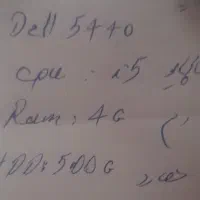 Dell 5440
cpu : i5
Ram : 4G
HDD: 500G